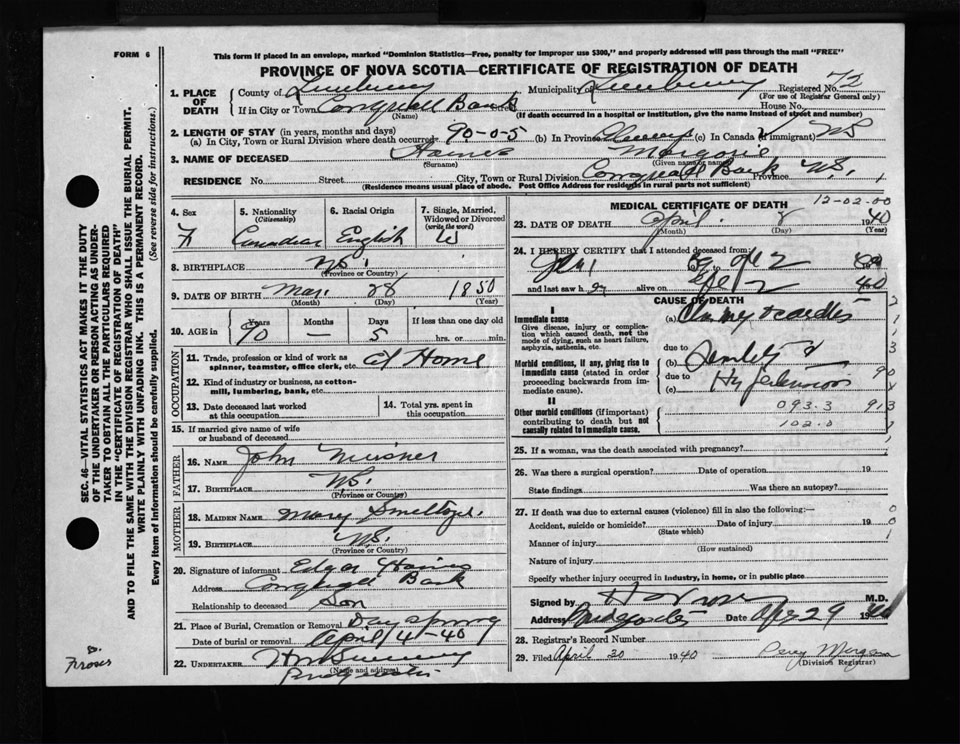 FORM 6
This form if placed in an envelope, marked "Dominion Statistics—Free, penalty for improper use $300," and properly addressed will pass through the mail "FREE"
PROVINCE OF NOVA SCOTIA—CERTIFICATE OF REGISTRATION OF DEATH
SEC. 46—VITAL STATISTICS ACT MAKES IT THE DUTY
OF THE UNDERTAKER OR PERSON ACTING AS UNDER-
TAKER TO OBTAIN ALL THE PARTICULARS REQUIRED
IN THE "CERTIFICATE OF REGISTRATION OF DEATH"
AND TO FILE THE SAME WITH THE DIVISION REGISTRAR WHO SHALL ISSUE THE BURIAL PERMIT.
WRITE PLAINLY WITH UNFADING INK. THIS IS A PERMANENT RECORD.
Every item of information should be carefully supplied. (See reverse side for instructions.)
1. PLACE OF DEATH
County of Lunenburg Municipality of Lunenburg Registered No. 72
(For use of Registrar General only)
If in City or Town Conquerall Bank Street House No.
(Name) (If death occurred in a hospital or institution, give the name instead of street and number)
2. LENGTH OF STAY (in years, months and days)
(a) In City, Town or Rural Division where death occurred 90-0-5 (b) In Province Always (c) In Canada (if immigrant) NS
3. NAME OF DECEASED Haines
(Surname) (Given name or names)
RESIDENCE No. Street City, Town or Rural Division Conquerall Bank Province N.S.
(Residence means usual place of abode. Post Office Address for residents in rural parts not sufficient)
4. Sex F
5. Nationality (Citizenship) Canadian
6. Racial Origin English
7. Single, Married, Widowed or Divorced (write the word) W
8. BIRTHPLACE N.S.
(Province or Country)
9. DATE OF BIRTH Mar. 28 1850
(Month) (Day) (Year)
10. AGE in Years 90 Months — Days 5 If less than one day old hrs. or min.
OCCUPATION
11. Trade, profession or kind of work as spinner, teamster, office clerk, etc. At Home
12. Kind of industry or business, as cotton-mill, lumbering, bank, etc.
13. Date deceased last worked at this occupation
14. Total yrs. spent in this occupation
15. If married give name of wife or husband of deceased
FATHER
16. NAME John
17. BIRTHPLACE N.S.
(Province or Country)
MOTHER
18. MAIDEN NAME Mary
19. BIRTHPLACE N.S.
(Province or Country)
20. Signature of informant Edgar Haines
Address Conquerall Bank
Relationship to deceased Son
21. Place of Burial, Cremation or Removal Dayspring
Date of burial or removal April 4-40
22. UNDERTAKER
(Name and address)
MEDICAL CERTIFICATE OF DEATH
12-02-00
23. DATE OF DEATH April 2 1940
(Month) (Day) (Year)
24. I HEREBY CERTIFY that I attended deceased from:
and last saw h er alive on 2 40
CAUSE OF DEATH
I
Immediate cause
Give disease, injury or complication which caused death, not the mode of dying, such as heart failure, asphyxia, asthenia, etc.
(a)
due to
Morbid conditions, if any, giving rise to immediate cause (stated in order proceeding backwards from immediate cause).
(b)
due to
(c)
II
Other morbid conditions (if important) contributing to death but not causally related to immediate cause.
093.3
102.0
25. If a woman, was the death associated with pregnancy?
26. Was there a surgical operation? Date of operation 19
State findings Was there an autopsy?
27. If death was due to external causes (violence) fill in also the following:—
Accident, suicide or homicide? Date of injury 19
(State which)
Manner of injury
(How sustained)
Nature of injury
Specify whether injury occurred in industry, in home, or in public place
Signed by M.D.
Address Date Apr 29 1940
28. Registrar's Record Number
29. Filed April 30 1940 Percy Morgan
(Division Registrar)